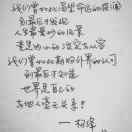 我们曾如此渴望命运的波澜
到最后才发现
人生最曼妙的风景
竟是内心的淡定与从容
我们曾如此期盼外界的认可
到最后才知道
世界是自己的
与他人毫无关系
——杨绛